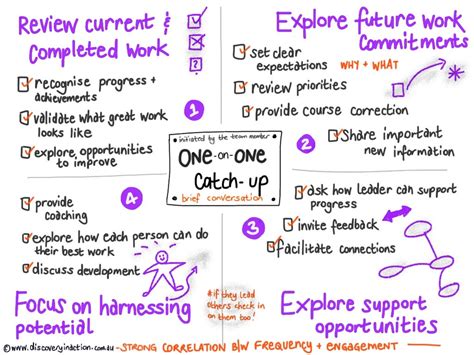 Review current &
completed work
recognise progress +
achievements
validate what great work
looks like
explore opportunities
to improve
1
Explore future work
commitments
set clear
expectations WHY + WHAT
review priorities
provide course correction
share important
new information
2
initiated by the team member
one-on-one
catch-up
brief conversation
4
provide
coaching
explore how each person can do
their best work
discuss development
Focus on harnessing
potential
3
ask how leader can support
progress
invite feedback
facilitate connections
Explore support
opportunities
*if they lead
others check in
on them too!
©www.discoveryinaction.com.au
-STRONG CORRELATION B/W FREQUENCY + ENGAGEMENT-